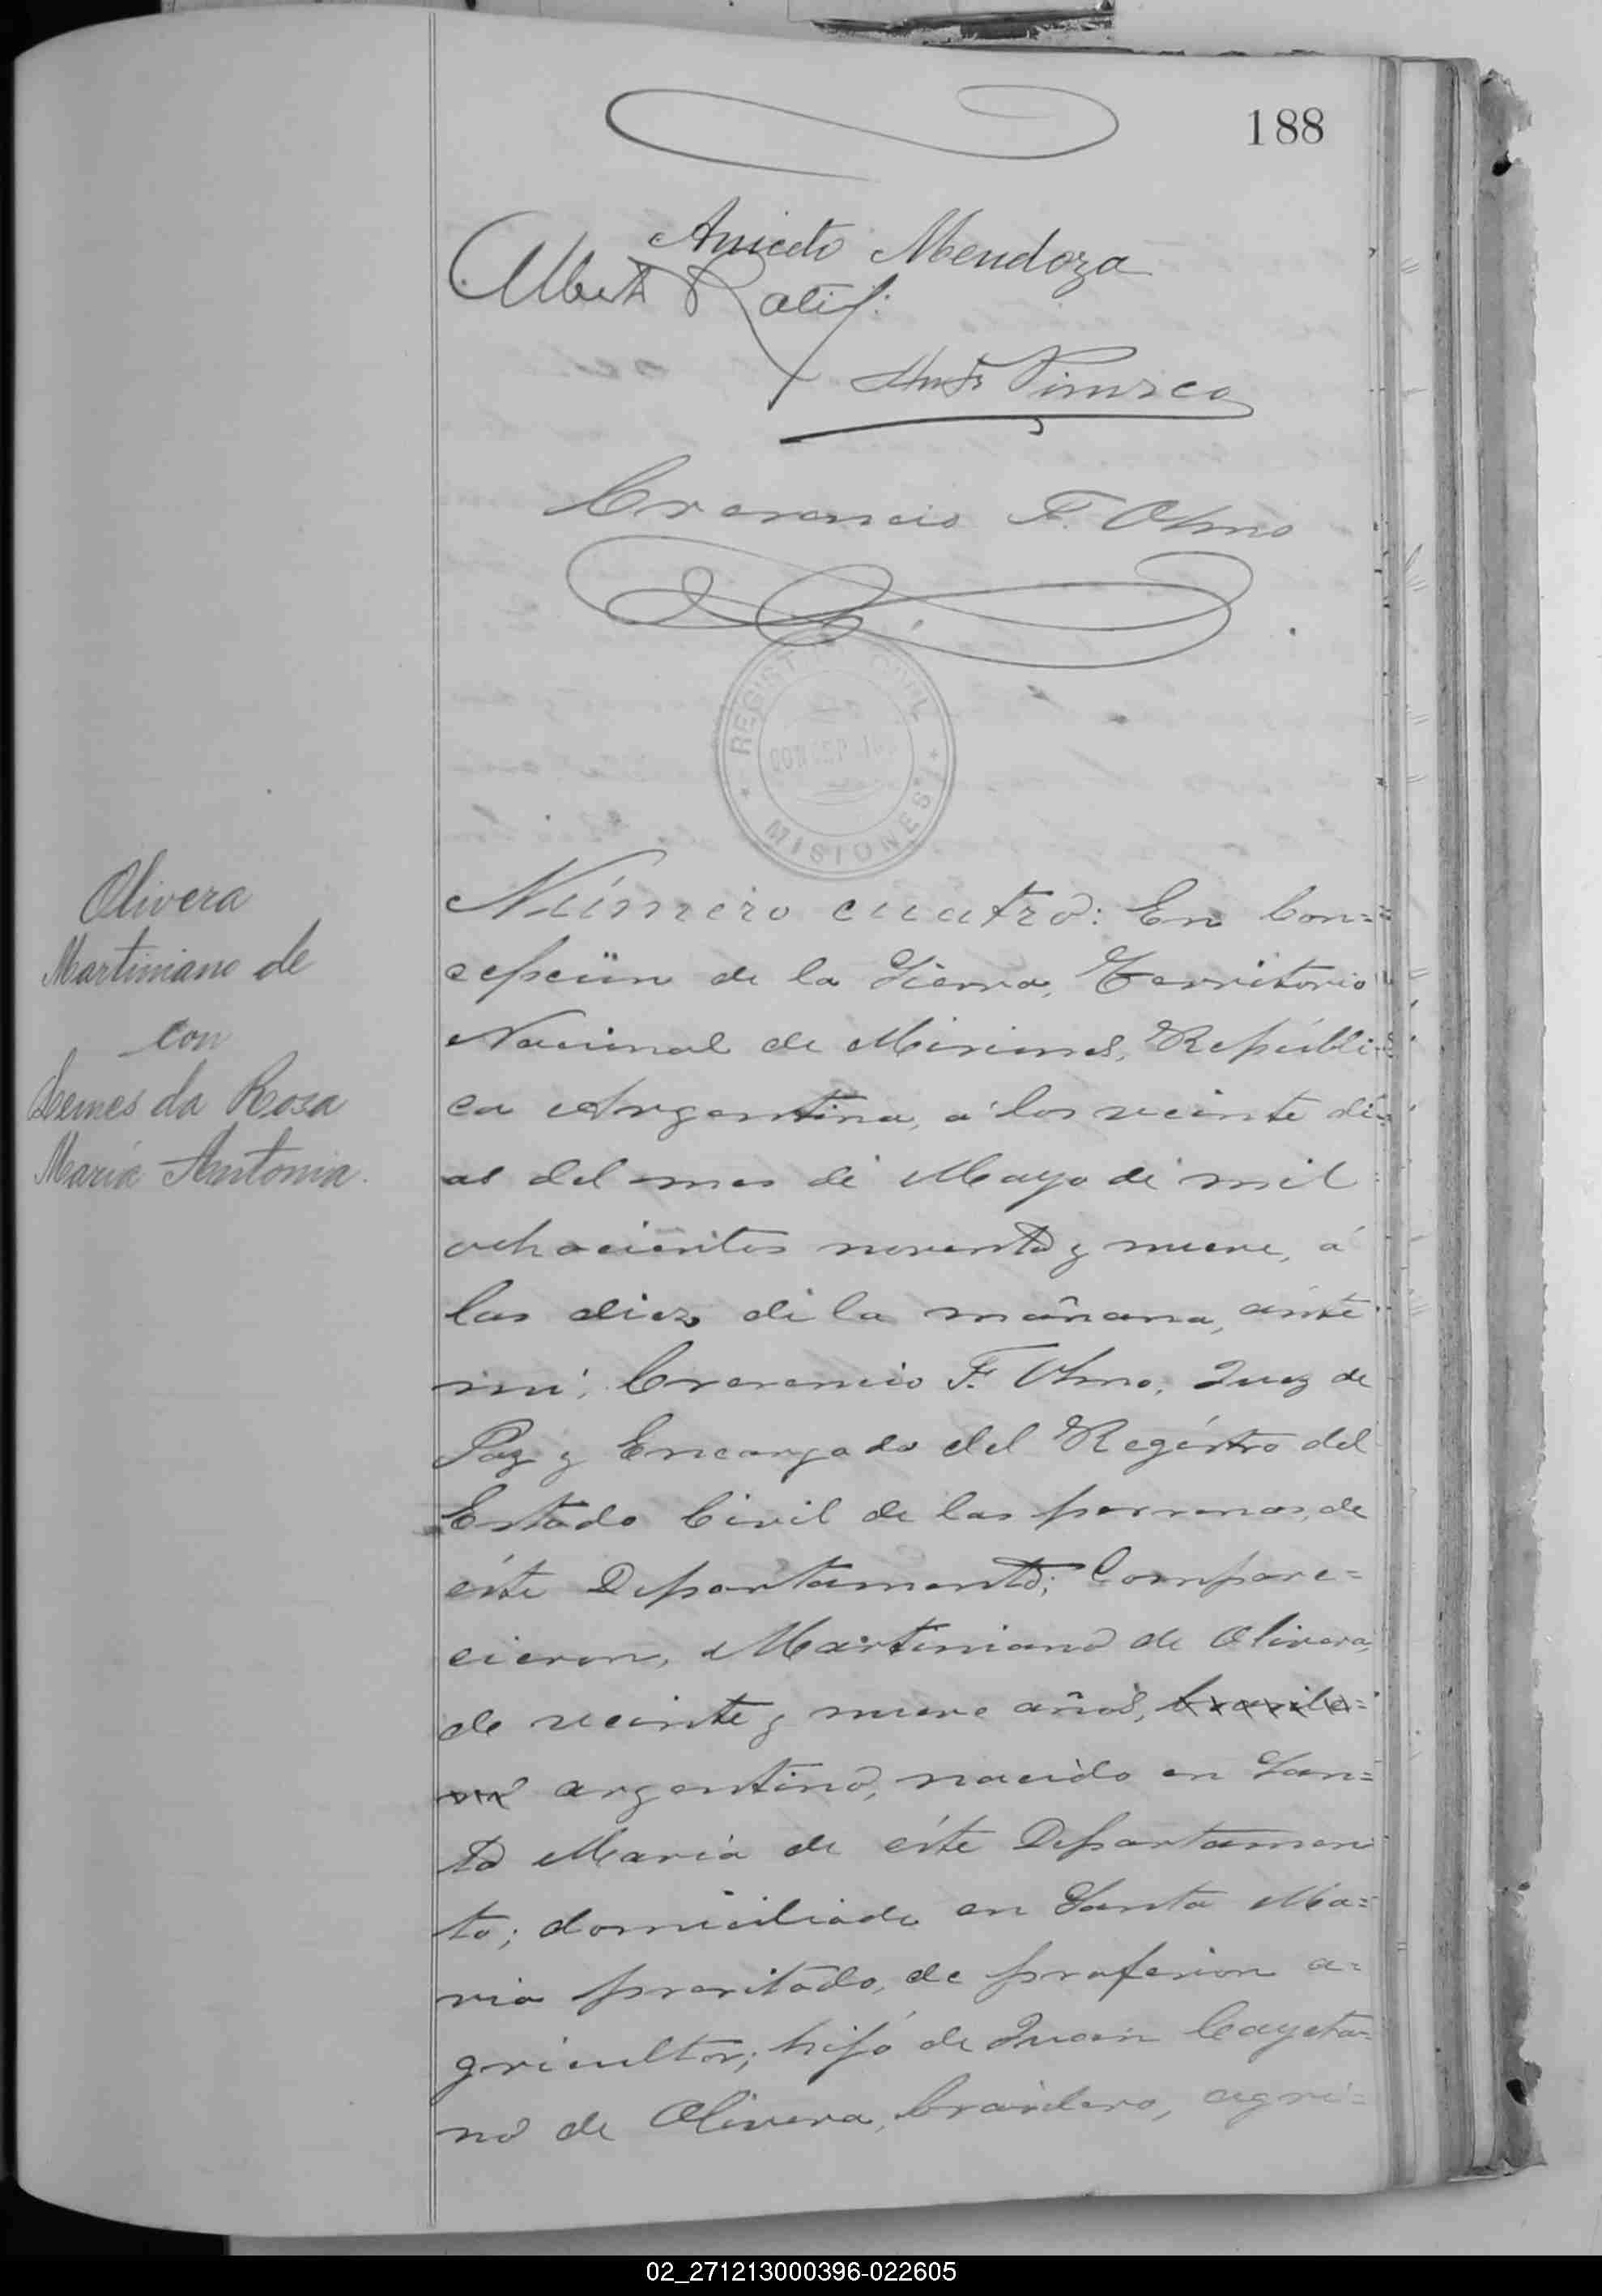 188
Aniceto Mendoza
Albert Ratif.
Crecencio F. Olmo
REGISTRO CIVIL
CONCEPCION
MISIONES
Olivera
Martiniano de
con
Lemes da Rosa
María Antonia.
Número cuatro: En Con=
cepción de la Sierra, Territorio
Nacional de Misiones, Repúbli-
ca Argentina, á los veinte di-
as del mes de Mayo de mil
ochocientos noventa y nueve, á
las diez de la mañana, ante
mi, Crecencio F. Olmo, Juez de
Paz y Encargado del Registro del
Estado Civil de las personas, de
éste Departamento; Compare=
cieron, Martiniano de Olivera,
de veinte y nueve años, brasile=
ro argentino, nacido en San=
ta María de éste Departamen
to; domiciliado en Santa Ma=
ria precitado, de profesion a=
gricultor; hijo de Juan Cayeta=
no de Olivera, brasilero, agri=
02_271213000396-022605